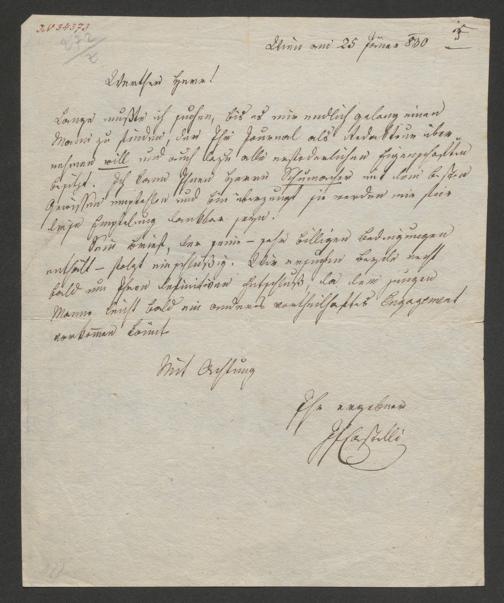 I.N. 34373
5
Wien am 25 Jäner 830
Werther Herr!
Lange mußte ich suchen, bis es mir endlich gelang einen
Mann zu finden, der Ihr Journal als Redakteur über
nehmen will und auch dazu alle erforderlichen Eigenschaften
besitzt. Ich kann Ihnen Herrn Schumacher mit dem besten
Gewissen empfehlen und bin überzeugt sie werden mir für
diese Empfehlung dankbar seyn.
Sein Brief, der seine – sehr billigen Bedingungen
enthält – folgt einschlüßig. Wir ersuchen beyde recht
bald um Ihren definitiven Entschluß, da dem jungen
Manne leicht bald ein anderes vortheilhaftes Engagement
vorkommen könnte.
Mit Achtung
Ihr ergebner
JFCastelli